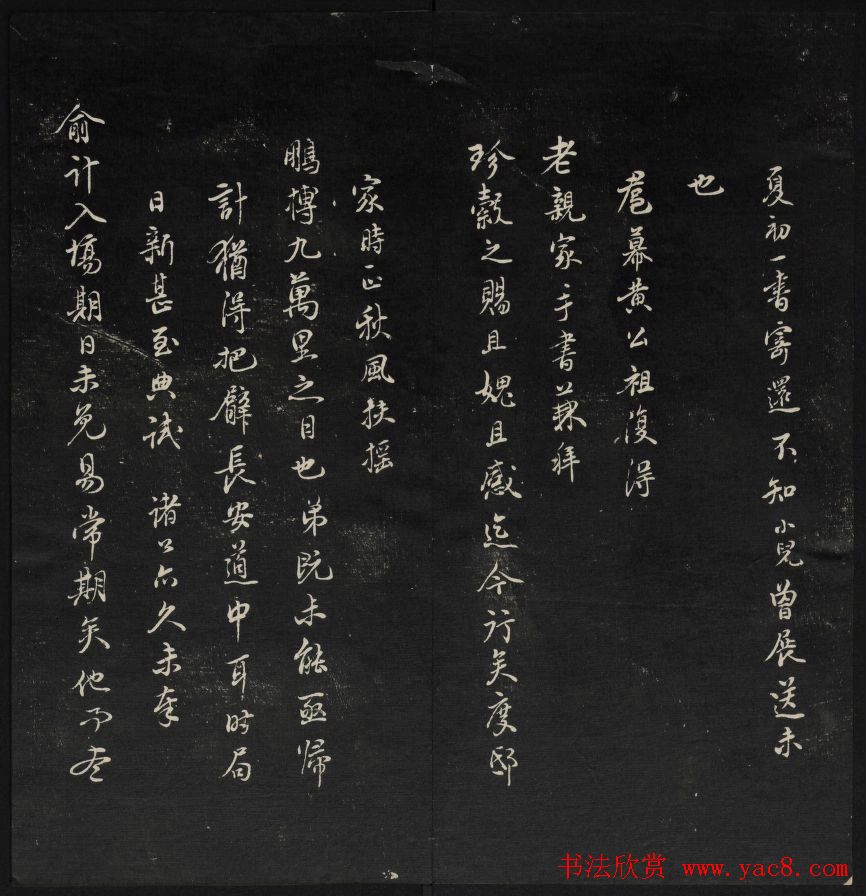 夏初一書寄還不知小兒曾展送未
也
鳸幕黄公祖復得
老親家手書兼拜
珍縠之賜且媿且感迄今行矣度邸
家時正秋風扶摇
鵬摶九萬里之日也弟既未能亟歸
計猶得把臂長安道中耳時局
日新甚至典試 諸公亦久未奉
俞計入塲期日未免易常期矣他不盡
书法欣赏 www.yac8.com